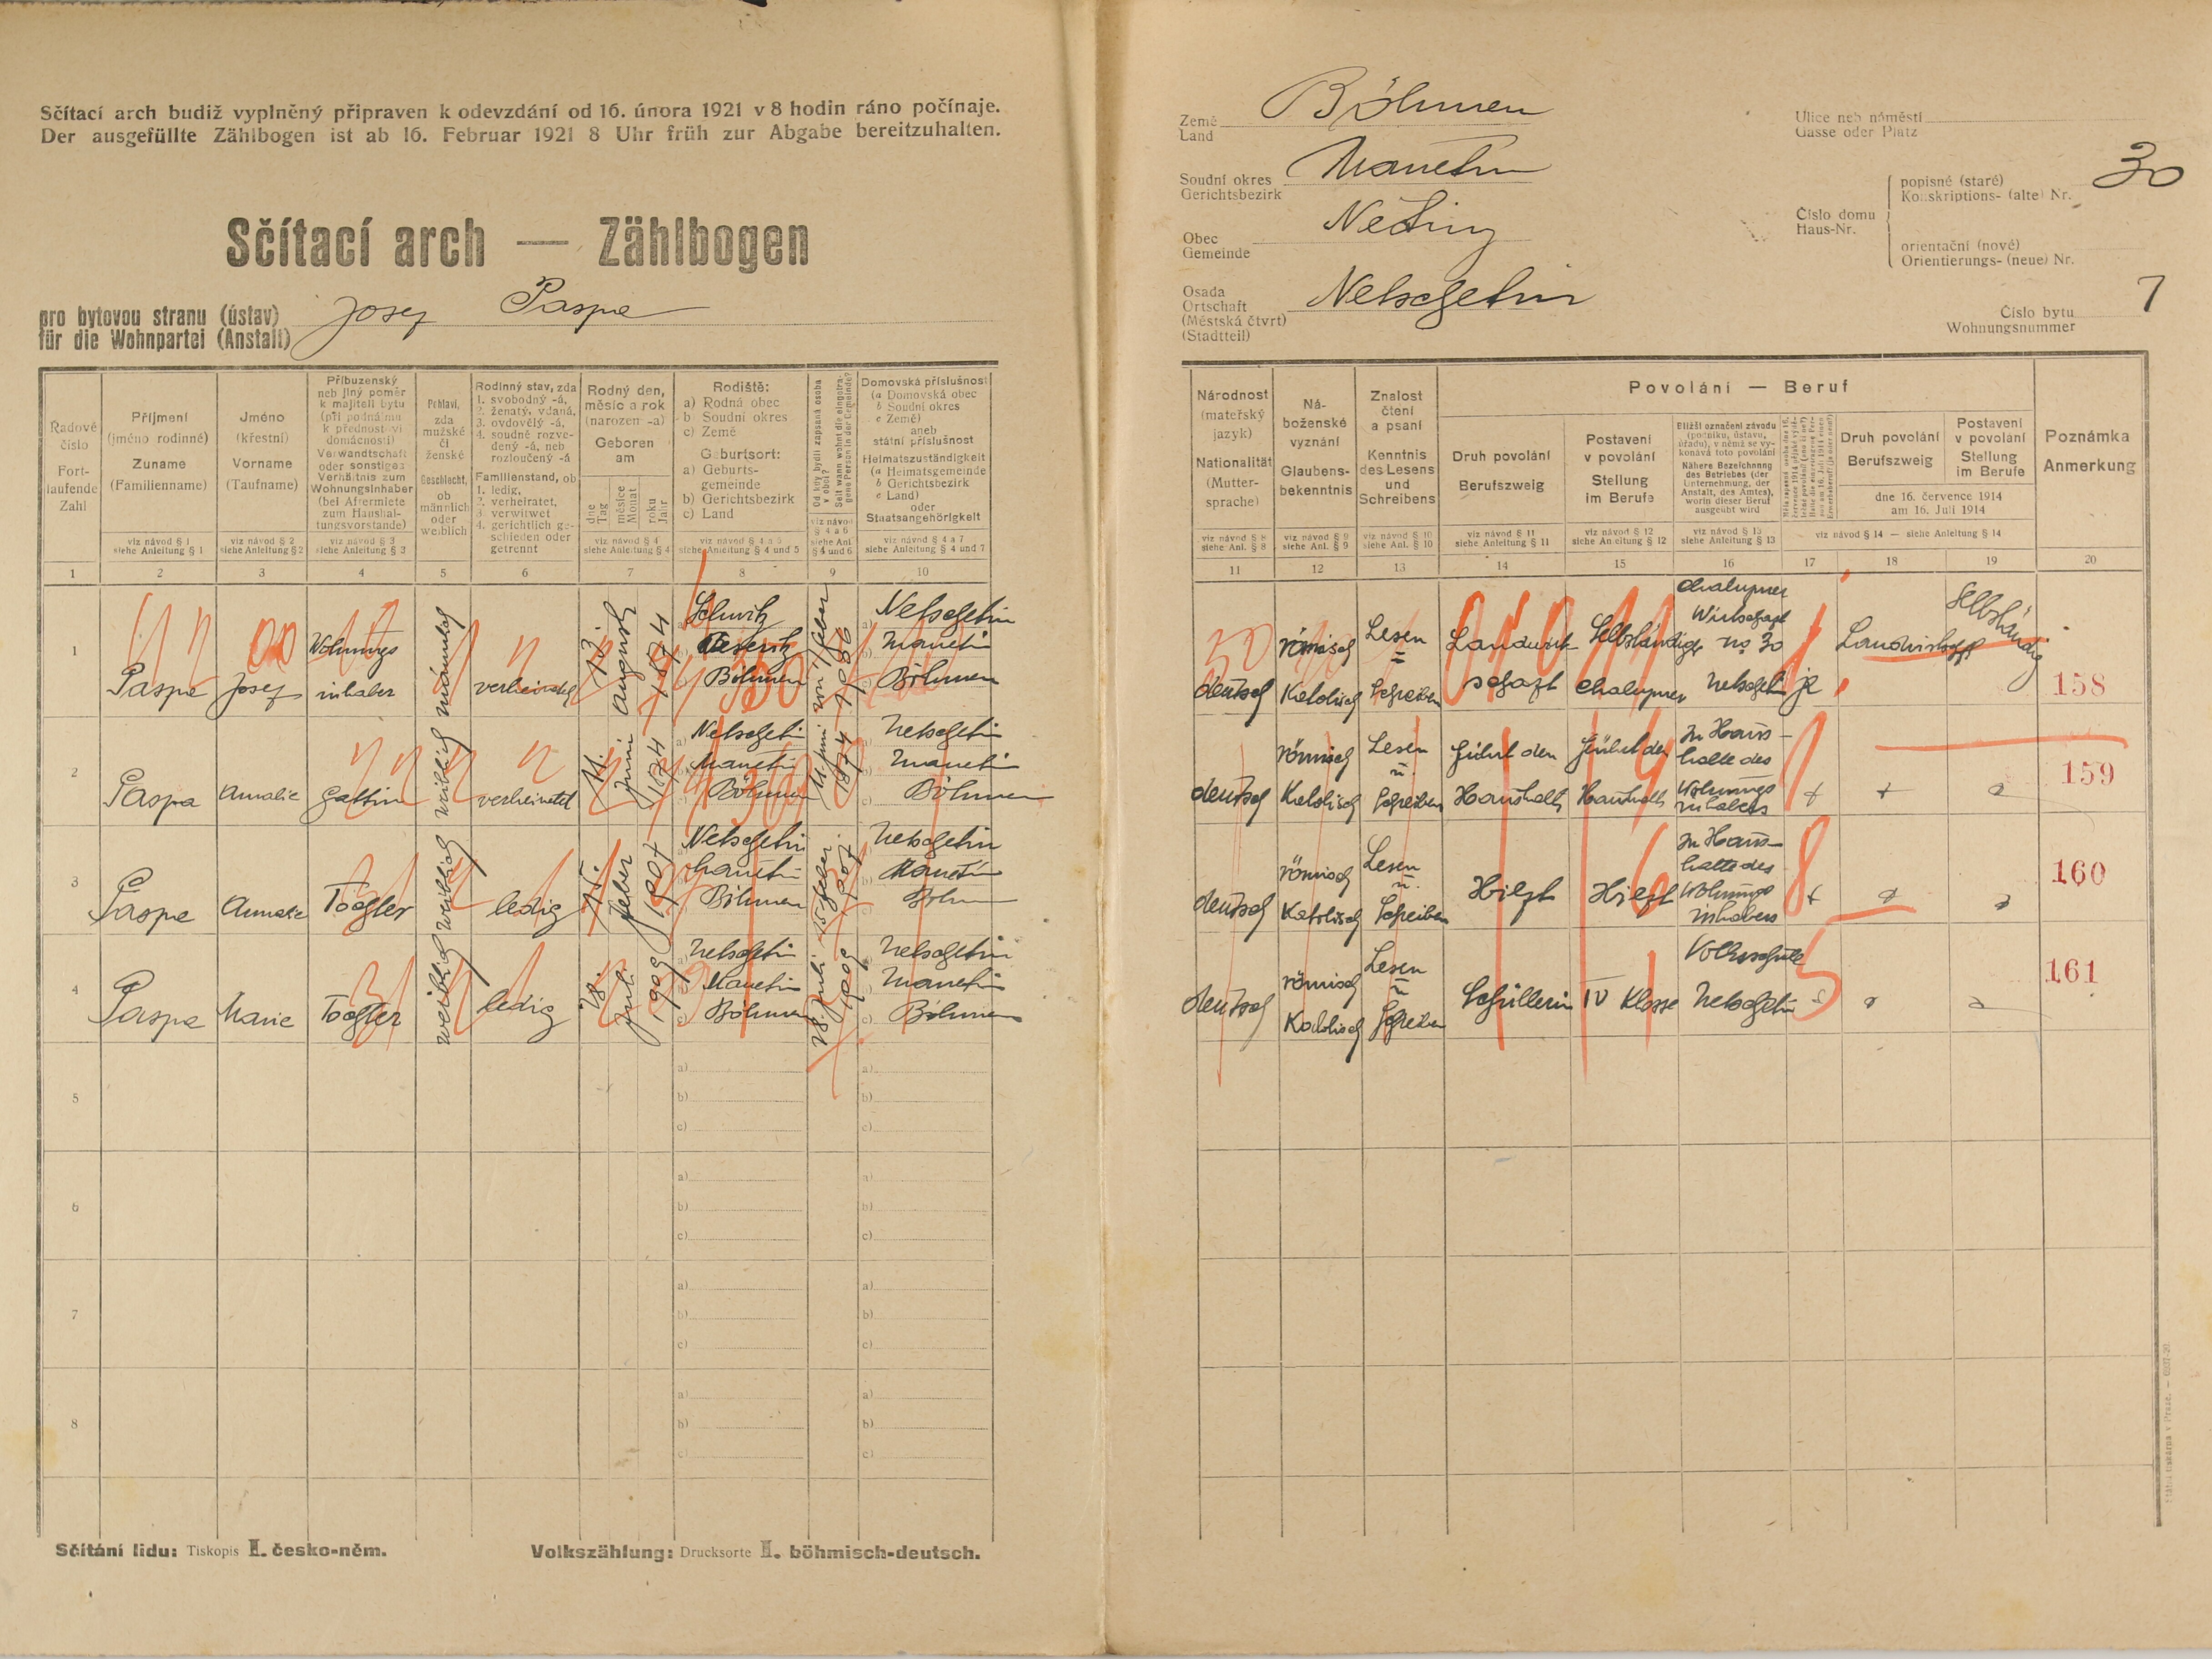 Sčítací arch budiž vyplněný připraven k odevzdání od 16. února 1921 v 8 hodin ráno počínaje.
Der ausgefüllte Zählbogen ist ab 16. Februar 1921 8 Uhr früh zur Abgabe bereitzuhalten.
Sčítací arch — Zählbogen
pro bytovou stranu (ústav)
für die Wohnpartei (Anstalt)
Josef Paspa
Země
Land
Böhmen
Soudní okres
Gerichtsbezirk
Manetin
Obec
Gemeinde
Nečtiny
Osada
Ortschaft
(Městská čtvrt)
(Stadtteil)
Netschetin
Ulice neb náměstí
Gasse oder Platz
Číslo domu
Haus-Nr.
popisné (staré)
Konskriptions- (alte) Nr.
30
orientační (nové)
Orientierungs- (neue) Nr.
Číslo bytu
Wohnungsnummer
7
Řadové
číslo
Fort-
laufende
Zahl
Příjmení
(jméno rodinné)
Zuname
(Familienname)
viz návod § 1
siehe Anleitung § 1
Jméno
(křestní)
Vorname
(Taufname)
viz návod § 2
siehe Anleitung § 2
Příbuzenský
neb jiný poměr
k majiteli bytu
(při podnájmu
k přednostovi
domácnosti)
Verwandtschaft
oder sonstiges
Verhältnis zum
Wohnungsinhaber
(bei Aftermiete
zum Haushal-
tungsvorstande)
viz návod § 3
siehe Anleitung § 3
Pohlaví,
zda
mužské
či
ženské
Geschlecht,
ob
männlich
oder
weiblich
Rodinný stav, zda
1. svobodný -á,
2. ženatý, vdaná,
3. ovdovělý -á,
4. soudně rozve-
dený -á, neb
rozloučený -á
Familienstand, ob
1. ledig,
2. verheiratet,
3. verwitwet
4. gerichtlich ge-
schieden oder
getrennt
Rodný den,
měsíc a rok
(narozen -a)
Geboren
am
dne
Tag
měsíce
Monat
roku
Jahr
viz návod § 4
siehe Anleitung § 4
Rodiště:
a) Rodná obec
b) Soudní okres
c) Země
Geburtsort:
a) Geburts-
gemeinde
b) Gerichtsbezirk
c) Land
viz návod § 4 a 5
siehe Anleitung § 4 und 5
Od kdy bydlí zapsaná osoba
v obci?
Seit wann wohnt die eingetra-
gene Person in der Gemeinde?
viz návod
§ 4 a 6
siehe Anl.
§ 4 und 6
Domovská příslušnost
(a Domovská obec
b Soudní okres
c Země)
aneb
státní příslušnost
Heimatszuständigkeit
(a Heimatsgemeinde
b Gerichtsbezirk
c Land)
oder
Staatsangehörigkeit
viz návod § 4 a 7
siehe Anleitung § 4 und 7
Národnost
(mateřský
jazyk)
Nationalität
(Mutter-
sprache)
viz návod § 8
siehe Anl. § 8
Ná-
boženské
vyznání
Glaubens-
bekenntnis
viz návod § 9
siehe Anl. § 9
Znalost
čtení
a psaní
Kenntnis
des Lesens
und
Schreibens
viz návod § 10
siehe Anl. § 10
Povolání — Beruf
Druh povolání
Berufszweig
viz návod § 11
siehe Anleitung § 11
Postavení
v povolání
Stellung
im Berufe
viz návod § 12
siehe Anleitung § 12
Bližší označení závodu
(podniku, ústavu,
úřadu), v němž se vy-
konává toto povolání
Nähere Bezeichnung
des Betriebes (der
Unternehmung, der
Anstalt, des Amtes),
worin dieser Beruf
ausgeübt wird
viz návod § 13
siehe Anleitung § 13
Druh povolání
Berufszweig
Postavení
v povolání
Stellung
im Berufe
dne 16. července 1914
am 16. Juli 1914
viz návod § 14 — siehe Anleitung § 14
Poznámka
Anmerkung
1 2 3 4 5 6 7 8 9 10 11 12 13 14 15 16 17 18 19 20
1
Paspa
Josef
Wohnungs
inhaber
männlich
verheiratet
13.
August
1874
Böhmen
Netschetin
Manetin
Böhmen
deutsch
römisch
Katolisch
Lesen
Schreiben
Landwirt
schaft
Selbständig
Chalupner
Chalupner
Wirtschaft
No 30
Netschetin
ja
Landwirtschaft
Selbständig
158
2
Paspa
Amalie
Gattin
weiblich
verheiratet
11.
Juni
1874
a) Netschetin
b) Manetin
c) Böhmen
11. Juni
1874
a) Netschetin
b) Manetin
c) Böhmen
deutsch
römisch
Katolisch
Lesen
u.
Schreiben
Führt den
Haushalt
Führt den
Haushalt
Im Haus-
halte des
Wohnungs
inhabers
159
3
Paspa
Tochter
weiblich
ledig
15.
Feber
1907
a) Netschetin
b) Manetin
c) Böhmen
15. Feber
1907
a) Netschetin
b) Manetin
c) Böhm
deutsch
römisch
Katolisch
Lesen
u.
Schreiben
Hilft
Hilft
Im Haus-
halte des
Wohnungs
inhabers
160
4
Paspa
Marie
Tochter
weiblich
ledig
28.
Juli
1909
a) Netschetin
b) Manetin
c) Böhmen
28. Juli
1909
a) Netschetin
b) Manetin
c) Böhmen
deutsch
römisch
Katolisch
Lesen
u
Schreiben
Schüllerin
IV Klasse
Volksschule
Netschetin
161
5
a)
b)
c)
a)
b)
c)
6
a)
b)
c)
a)
b)
c)
7
a)
b)
c)
a)
b)
c)
8
a)
b)
c)
a)
b)
c)
Sčítání lidu: Tiskopis II. česko-něm.
Volkszählung: Drucksorte II. böhmisch-deutsch.